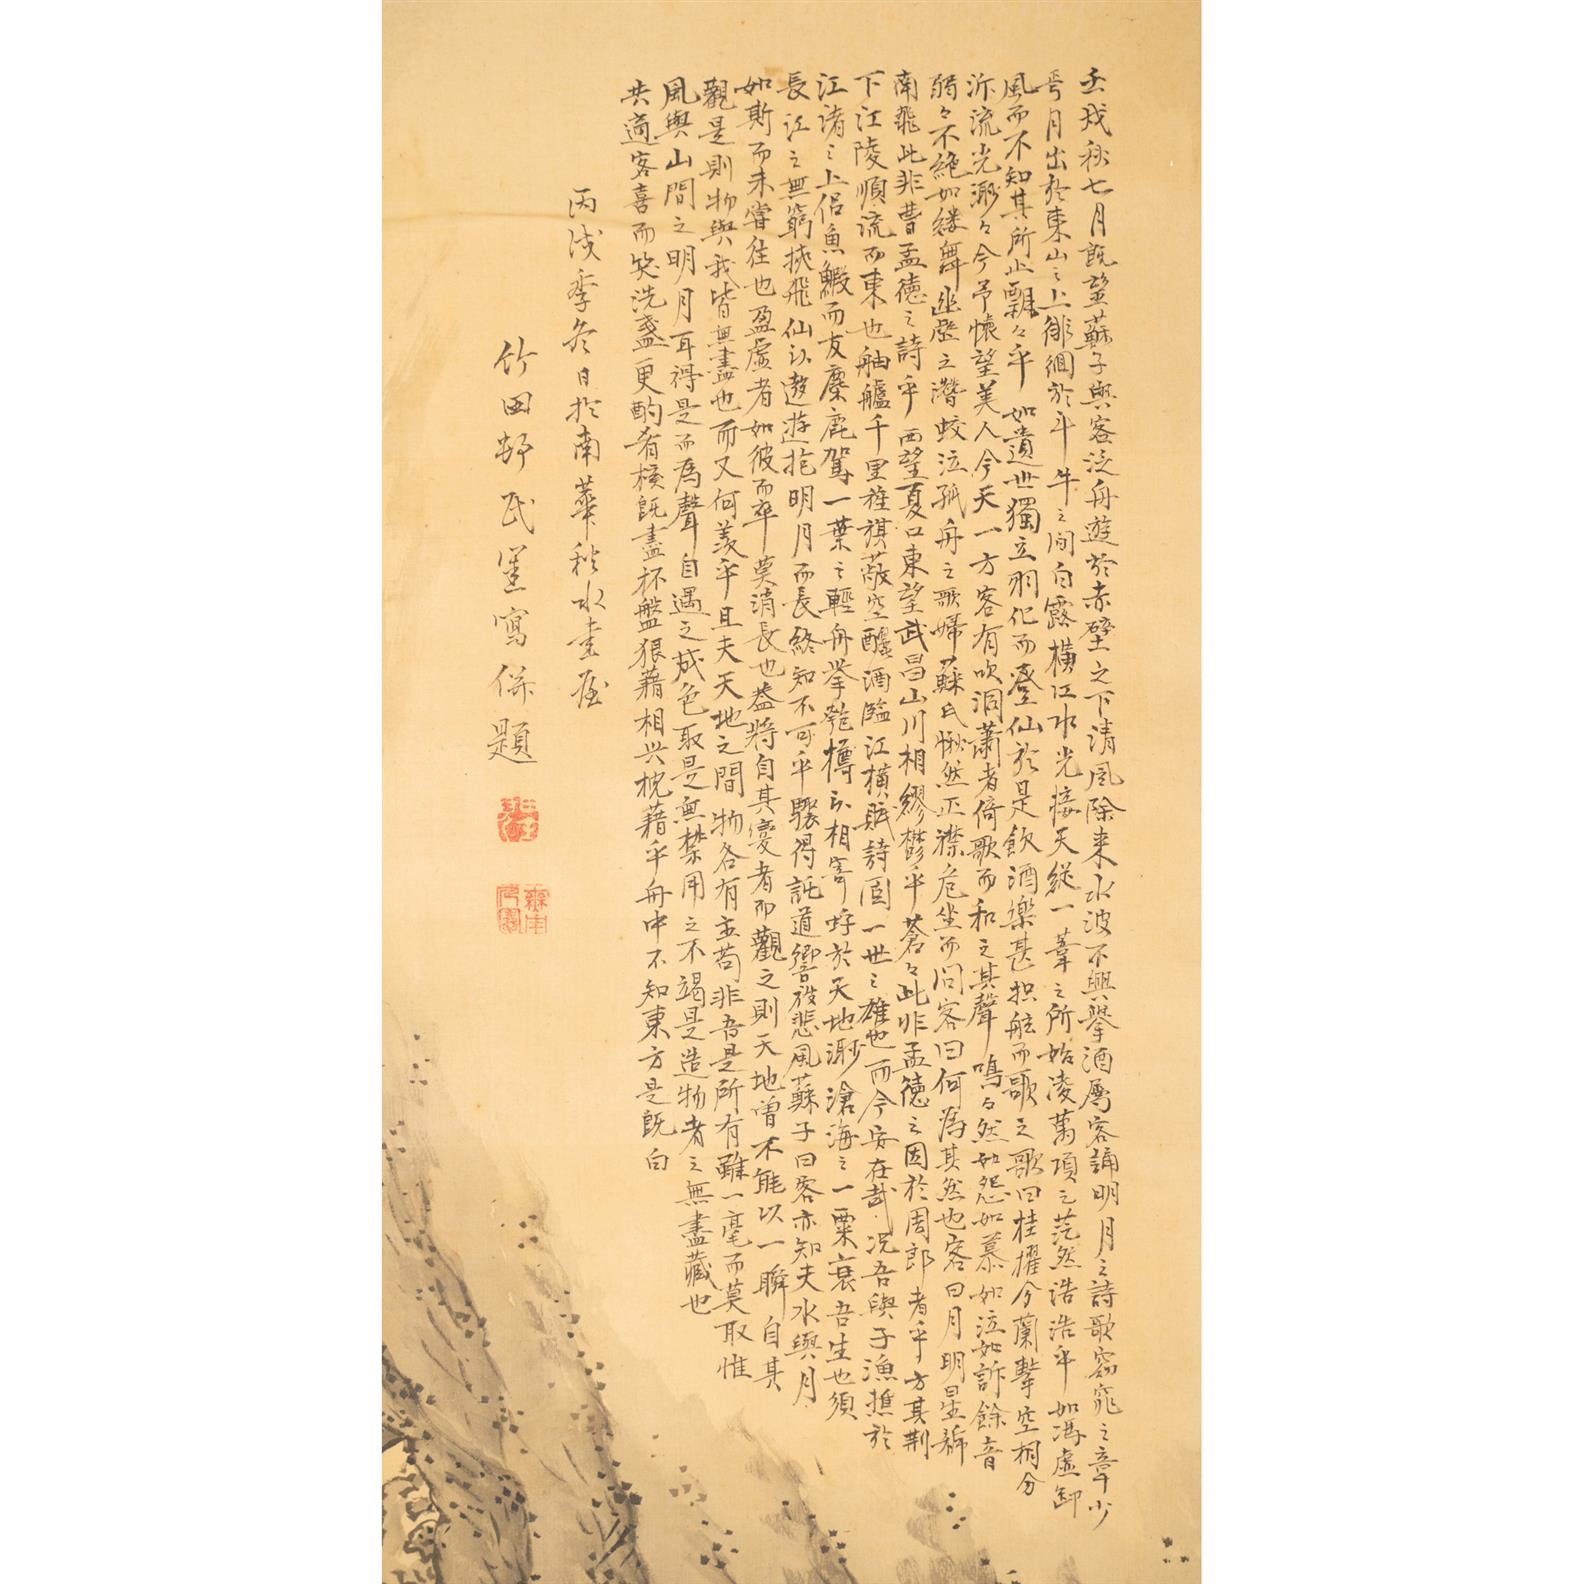 壬戌秋七月既望蘇子與客泛舟遊於赤壁之下清風徐来水波不興擧酒属客誦明月之詩歌窈窕之章少
焉月出於東山之上徘徊於斗牛之间白露横江水光接天縦一葦之所如凌萬頃之茫然浩浩乎如馮虚御
風而不知其所止飄々乎如遺世獨立羽化而登仙於是飲酒樂甚扣舷而歌之歌曰桂擢兮蘭撃空桐兮
泝流光渺々兮予懐望美人兮天一方客有吹洞蕭者倚歌而和之其聲鳴々然如怨如慕如泣如訴餘音
嫋々不絶如縷舞幽壑之潜蛟泣孤舟之嫠婦蘇氏愀然正襟危坐而问客曰何為其然也客曰月明星稀
南飛此非曹孟德之詩乎西望夏口東望武昌山川相繆欝乎蒼々此非孟德之困於周郎者乎方其荆
下江陵順流而東也舳艫千里旌旗蔽空釃酒臨江横賦詩固一世之雄也而今安在哉况吾與子漁樵於
江渚之上侣魚鰕而友麋鹿駕一葉之輕舟挙匏樽以相寄蜉於天地渺滄海之一粟哀吾生也須
長江之無窮挟飛仙以遨遊抱明月而長終知不可乎驟得託遺響於悲風蘇子曰客亦知夫水與月
如斯而未嘗往也盈虚者如彼而卒莫消長也葢将自其変者而觀之則天地曽不能以一瞬自其
觀是則物與我皆無盡也而又何羨乎且夫天地之間物各有主苟非吾是所有雖一毫而莫取惟
風與山間之明月耳得是而為聲自遇之成色取是無禁用之不竭是造物者之無盡藏也
共適客喜而笑洗盞更酌肴核既盡杯盤狼藉相与枕藉乎舟中不知東方是既白
丙戌季冬日於南華秋水書屋
竹田邨民憲寫併題